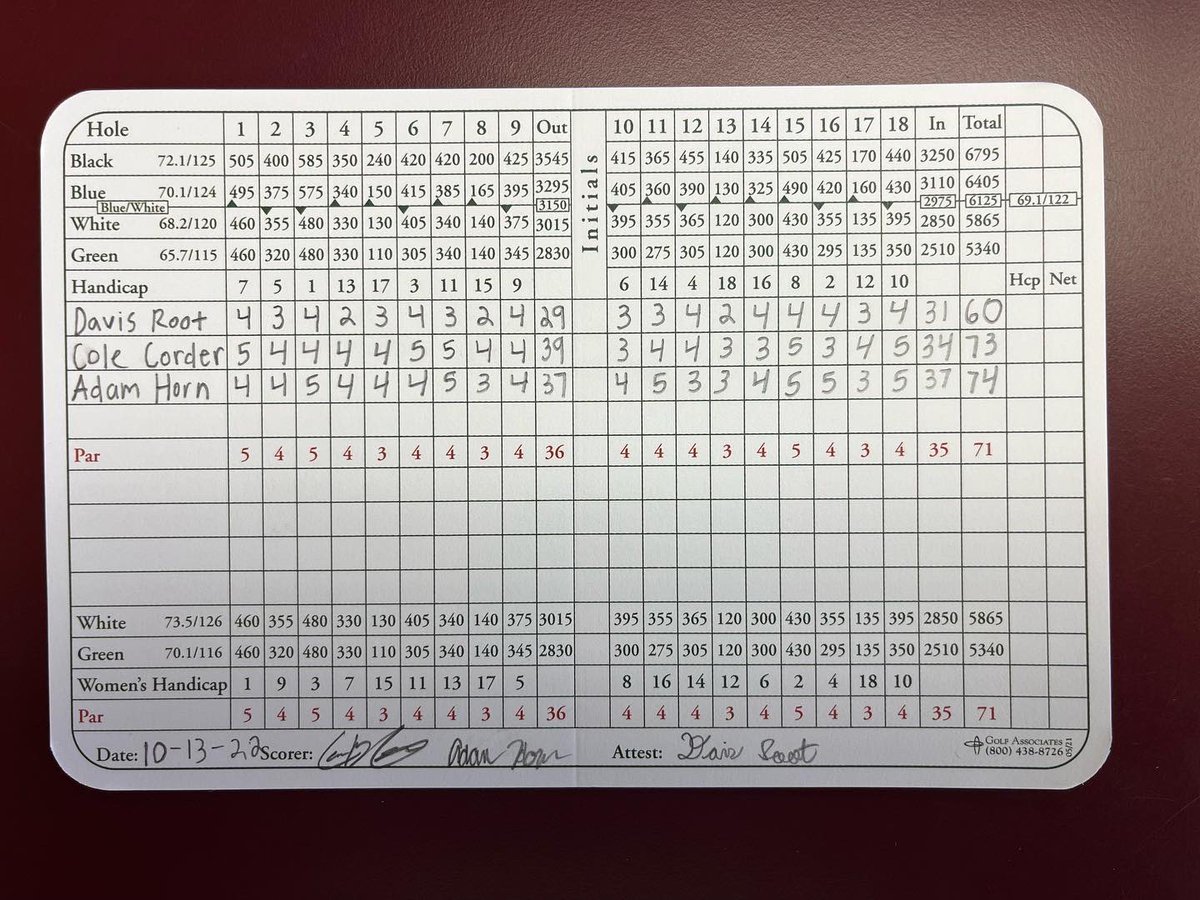 Hole 1 2 3 4 5 6 7 8 9 Out Initials 10 11 12 13 14 15 16 17 18 In Total
Black 72.1/125 505 400 585 350 240 420 420 200 425 3545 415 365 455 140 335 505 425 170 440 3250 6795
Blue 70.1/124 495 375 575 340 150 415 385 165 395 3295 405 360 390 130 325 490 420 160 430 3110 6405
Blue/White 3150 2975 6125 69.1/122
White 68.2/120 460 355 480 330 130 405 340 140 375 3015 395 355 365 120 300 430 355 135 395 2850 5865
Green 65.7/115 460 320 480 330 110 305 340 140 345 2830 300 275 305 120 300 430 295 135 350 2510 5340
Handicap 7 5 1 13 17 3 11 15 9 6 14 4 18 16 8 2 12 10 Hcp Net
Davis Root 4 3 4 2 3 4 3 2 4 29 3 3 4 2 4 4 4 3 4 31 60
Cole Corder 5 4 4 4 4 5 5 4 4 39 3 4 4 3 3 5 3 4 5 34 73
Adam Horn 4 4 5 4 4 4 5 3 4 37 4 5 3 3 4 5 5 3 5 37 74
Par 5 4 5 4 3 4 4 3 4 36 4 4 4 3 4 5 4 3 4 35 71
White 73.5/126 460 355 480 330 130 405 340 140 375 3015 395 355 365 120 300 430 355 135 395 2850 5865
Green 70.1/116 460 320 480 330 110 305 340 140 345 2830 300 275 305 120 300 430 295 135 350 2510 5340
Women's Handicap 1 9 3 7 15 11 13 17 5 8 16 14 12 6 2 4 18 10
Par 5 4 5 4 3 4 4 3 4 36 4 4 4 3 4 5 4 3 4 35 71
Date: 10-13-22 Scorer: Adam Horn Attest: Golf Associates
(800) 438-8726 05/21